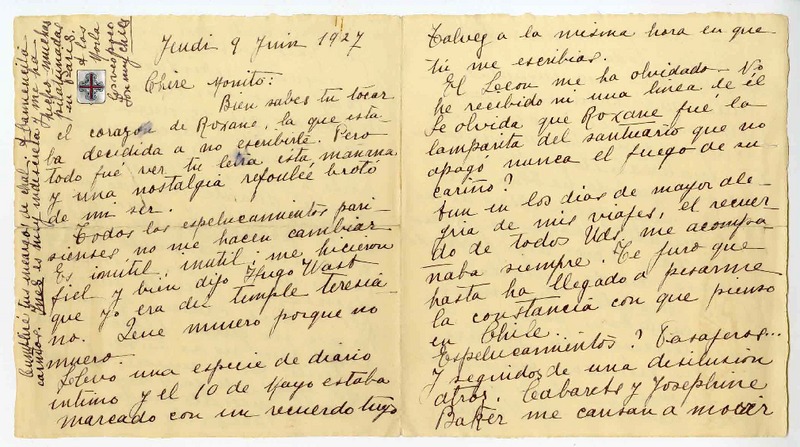 Jeudi 9 Juin 1927
Chire Monito:
Bien sabes tu tocar
el corazón de Roxane, la que esta-
ba decidida a no escribirte. Pero
todo fué ver tu letra esta mañana
y una nostalgia refouleé brotó
de mi ser.
Todos los espelucamientos pari-
sienses no me hacen cambiar
Es inutil, inutil; me hicieron
fiel y bien dijo Hugo Wast
que yo era del temple teresia-
no. Que muero porque no
muero.
Llevo una especie de diario
íntimo y el 10 de Mayo estaba
marcado con un recuerdo tuyo
Talvez a la misma hora en que
tú me escribias.
El Leon me ha olvidado. No
he recibido ni una linea de él
Se olvida que Roxane fué la
lamparita del santuario que no
apagó nunca el fuego de su
cariño?
Aun en los dias de mayor ale-
gria de mis viajes, el recuer-
do de todos Uds. me acompa-
ñaba siempre. Te juro que
hasta ha llegado a pesarme
la constancia con que pienso
en Chile.
Espelucamientos? Pasajeros...
Y seguidos de una desilusión
atroz. Cabarets y Josephine
Baker me cansan a morir
Cumplire tus encargos
cariños. Inés es muy indiscreta y me ha
muchas
en Paris.
a los
Morla